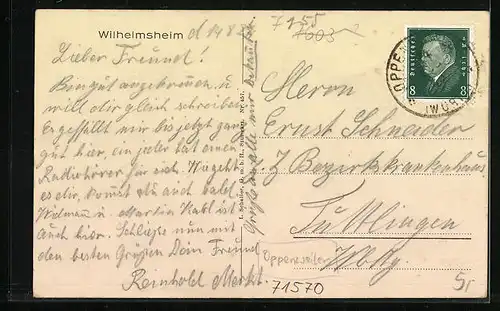 Wilhelmsheim d 14 8
Lieber Freund!
Bin gut angekommen u.
will dir gleich schreiben.
Es gefällt mir bis jetzt ganz
gut hier, ein jeder hat einen
Radiohörer für sich. Wie geht
es dir, kommst du auch bald
u. Martin ist
auch hier. Schließe nun mit
den besten Grüßen Dein Freund
Reinhold Merkt.
7155
7603
Herrn
Ernst Schneider
z. Bezirkskrankenhaus
Tuttlingen
Wttbg.
Oppenweiler
71570
5,-
Deutsches Reich
8 8
OPPEN
(WÜR